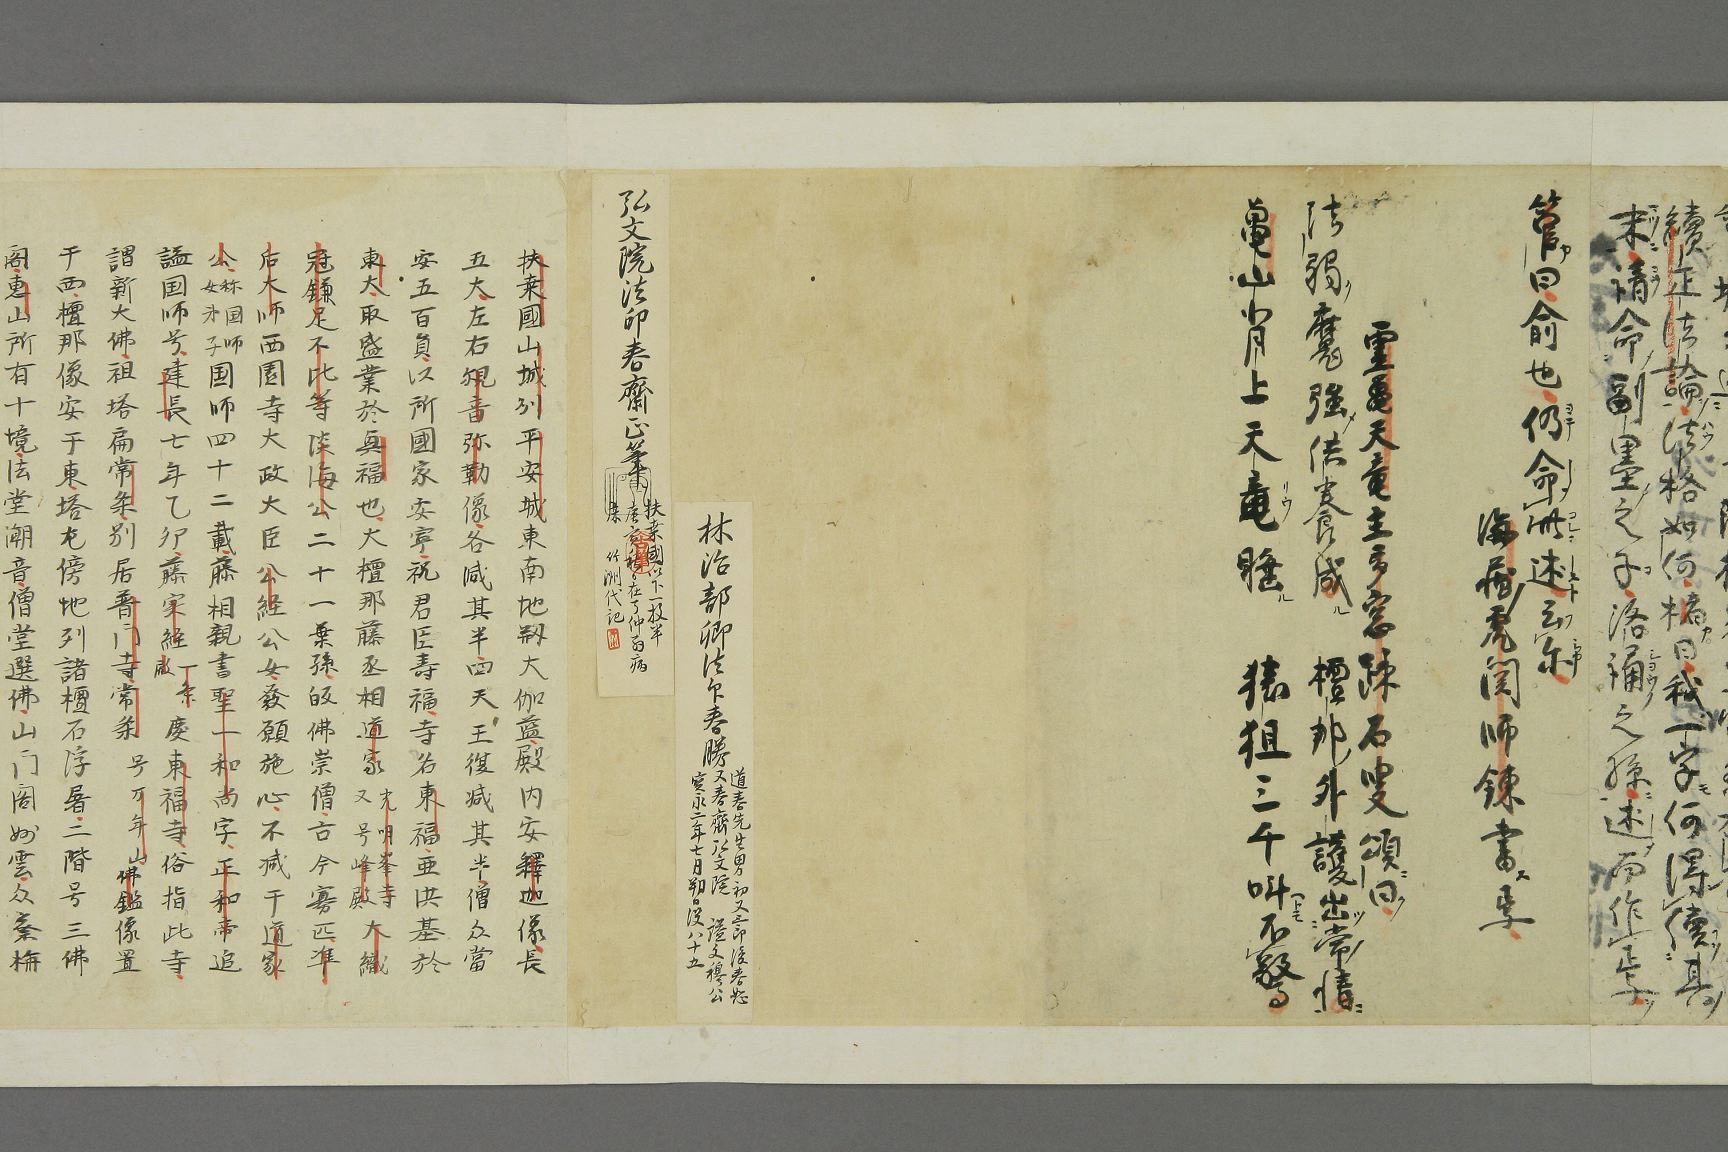 續正法論法格如何楮曰我一字何得續其
末請命副墨之子洛補之孫述而作焉
管曰俞也仍命卌述云尓
海藏虎関師錬書焉
霊亀天竜主夢窓踈石叟頌曰
法弱魔強供養咸 檀那外護出常情
亀山肯上天竜睡 猿狙三千叫不驚
林治部卿法印春勝
道春先生男初又三郎後春恕
又春齋弘文院 諡文穆公
弘文院法印春齋正筆
扶桒國以下一枚半
竹洲代記
扶桒國山城列平安城東南地剏大伽藍殿内安釋迦像長
五大左右覌音弥勒像各減其半四天王復減其半僧众當
安五百負以所國家安寧祝君臣寿福寺名東福亜洪基於
東大取盛業於興福也大檀那藤丞相道家 光明峯寺 又号峰殿 大織
冠鎌足不比等淡海公二十一葉孫皈佛崇僧古今寡匹準
后大师西園寺大政大臣公経公女發願施心不減于道家
公 称国師 女弟子 国師四十二載藤相親書聖一和尚字正和帝追
謚国师号建長七年乙夘藤家経 一条殿 慶東福寺俗指此寺
謂新大佛祖塔扁常楽别居普门寺常楽 号万年山 佛鑑像置
于西檀那像安于東塔左傍地列諸檀石浮屠二階号三佛
阁惠山所有十境法堂潮音僧堂選佛山门阁妙雲众寮栴